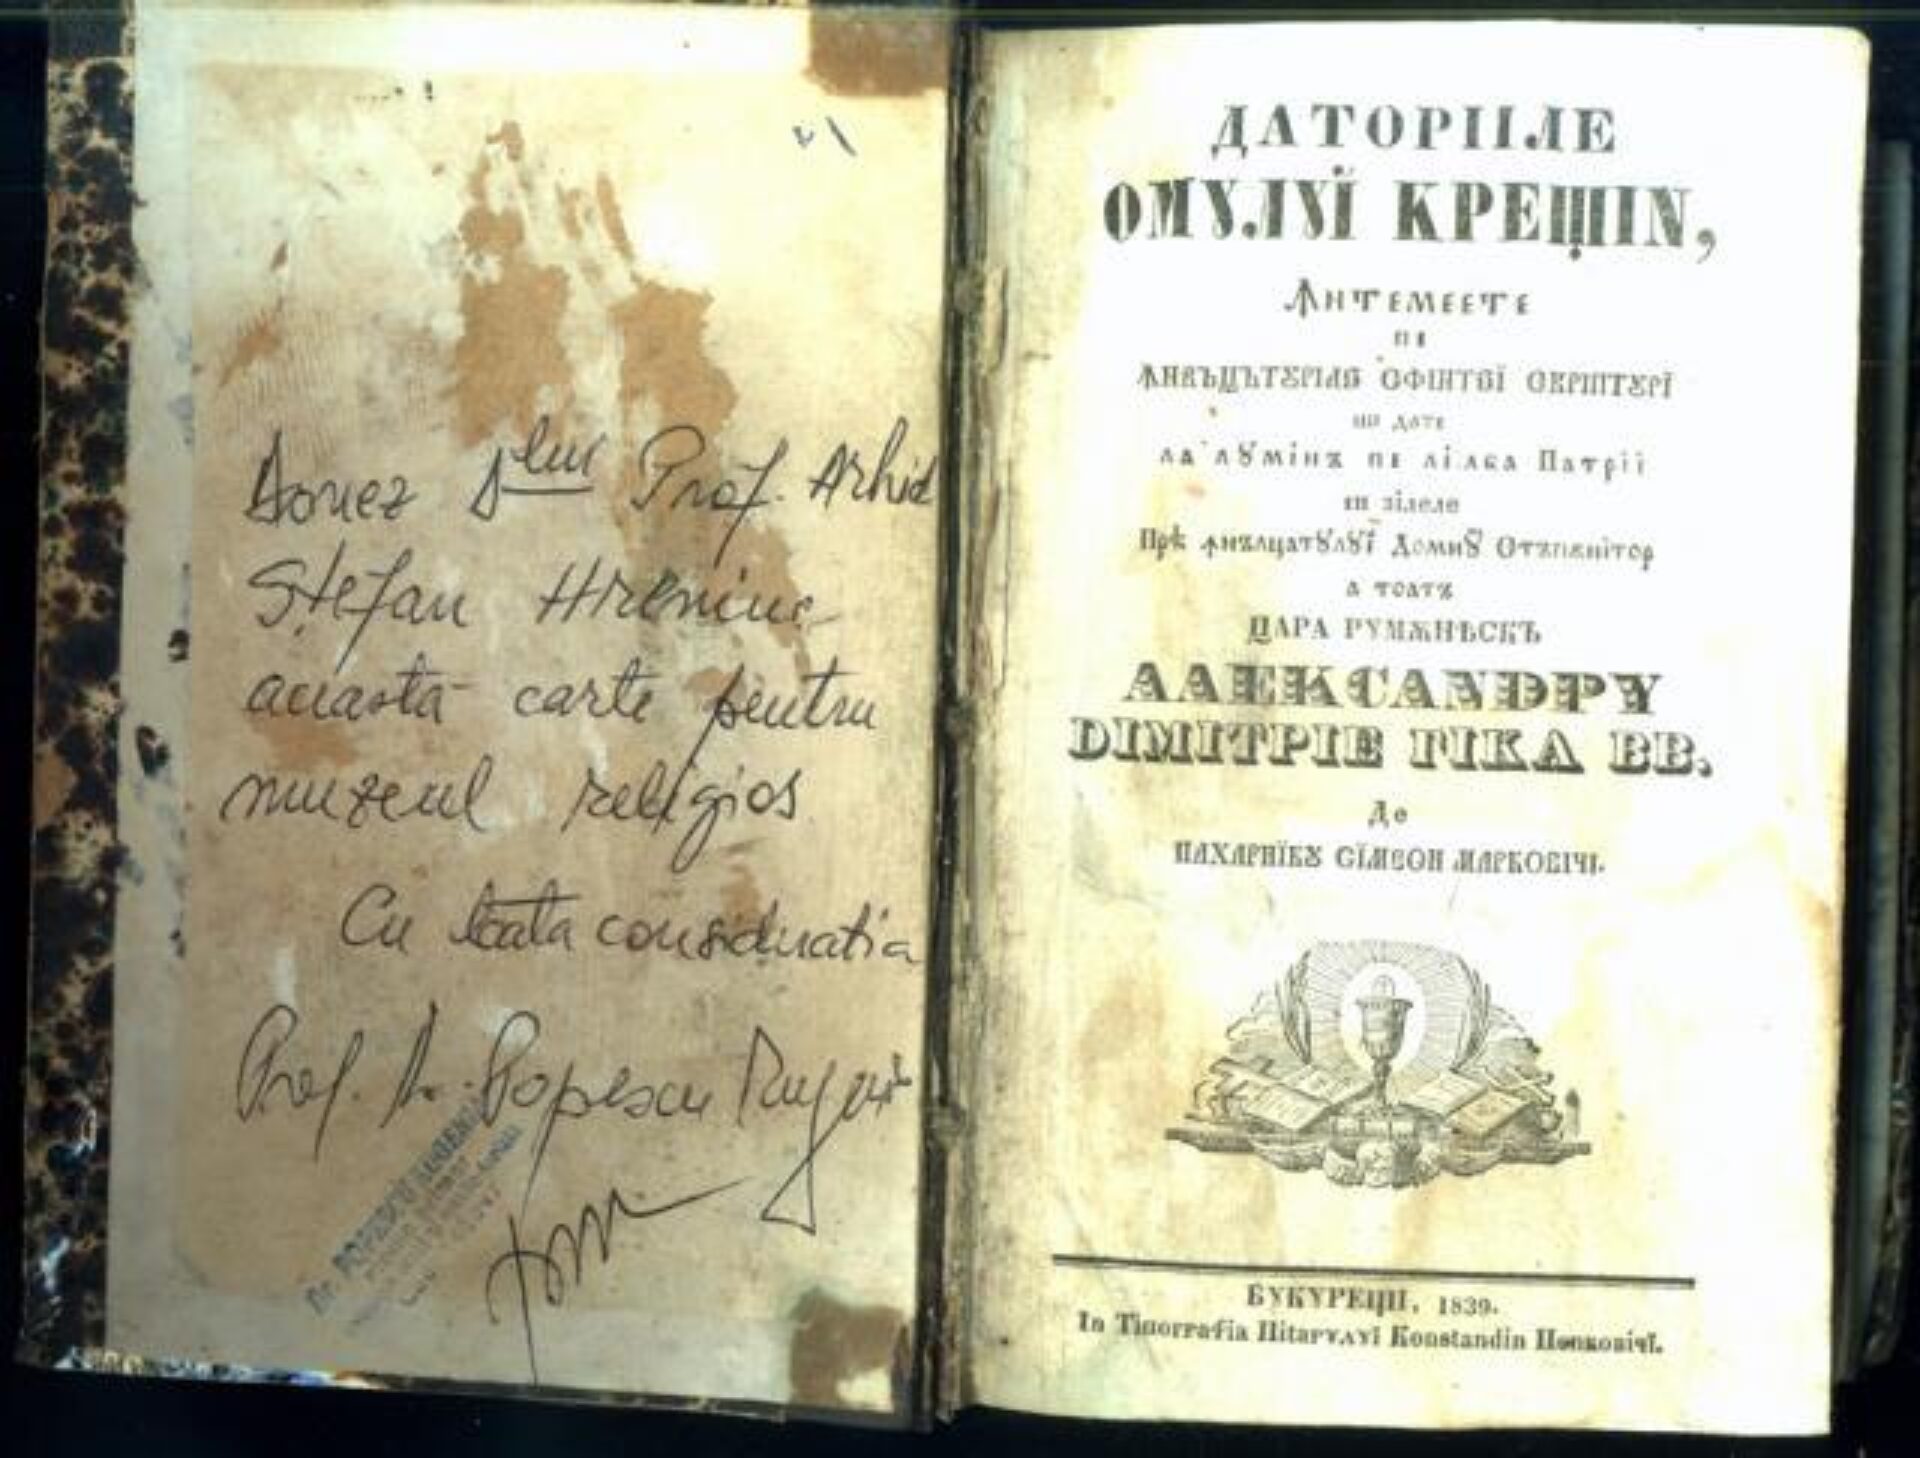 Donez D^lui Prof. Arhid
Ștefan Hrenciuc
aceasta carte pentru
muzeul religios
Cu toata consideratia
Prof. Dr. Popescu
Dr. POPESCU
ДАТОРІИЛЕ
ОМУЛУЇ КРЕЩІN,
ꙞНТЕМЕЕТЕ
ПЕ
ꙞНВЪЦЪТꙊРІЛЕ СФІНТЕЇ СКРІПТꙊРЇ
ши дате
ла лꙋминъ пе лімба Патрії
ін зілеле
Прѣ ꙟнълцатꙋлꙋї Домнꙋ Стъпънітор
а тоатъ
ЦАРА РУМѪНѢСКЪ
АЛЕКСАNDРУ
DIMITРIE ГІКА ВВ.
Де
ПАХАРНЇКꙊ СЇМЕОН МАРКОВІЧІ.
БУКУРЕЩІІ, 1839.
In Тіпографіа Пітарулуї Konstandin Пенковічї.